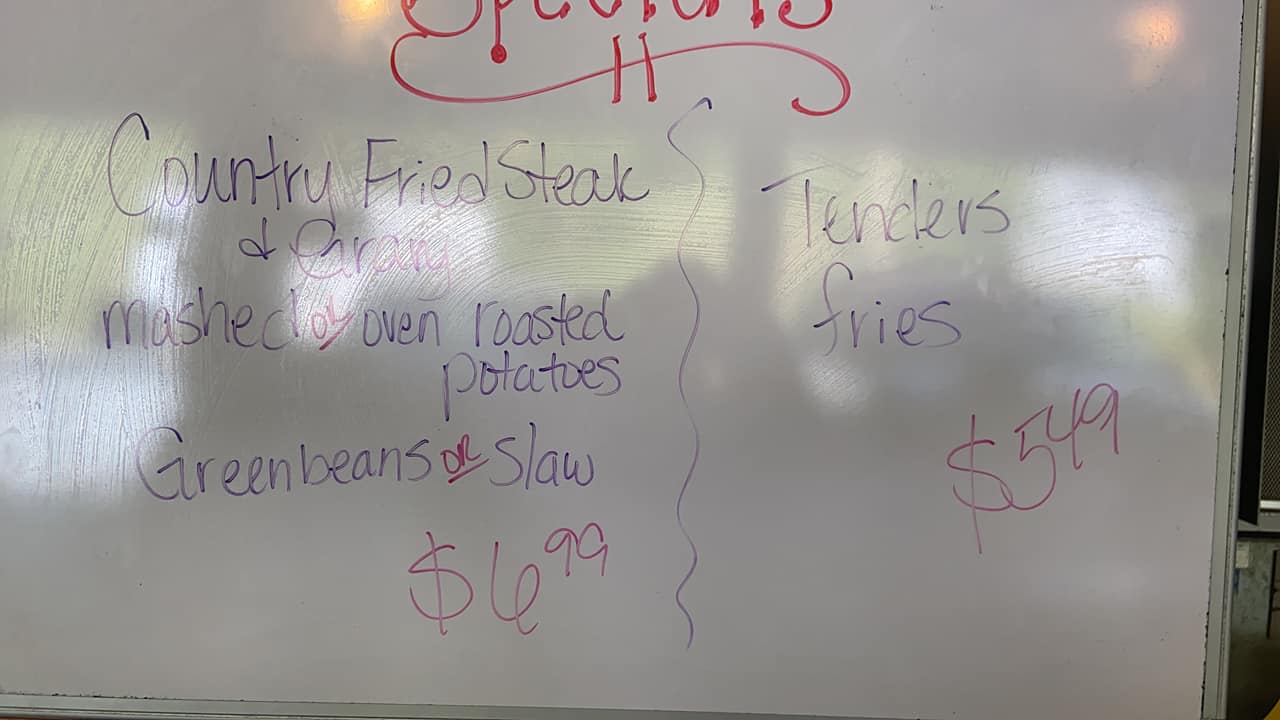 Specials
Country Fried Steak
& Gravy
mashed or oven roasted
potatoes
Greenbeans or Slaw
$6.99
Tenders
fries
$5.49